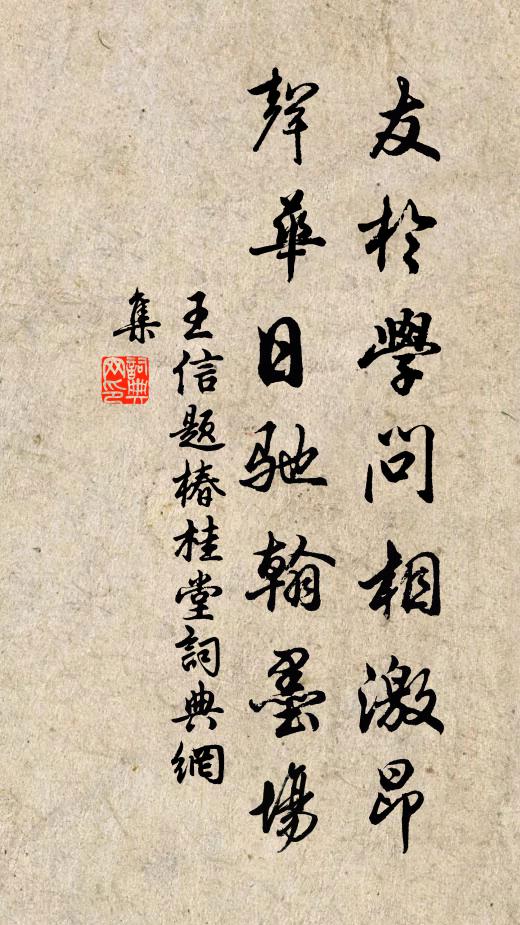 友於學問相激昂
聲華日馳翰墨場
王信題椿桂堂詞典網
集
詞典網印